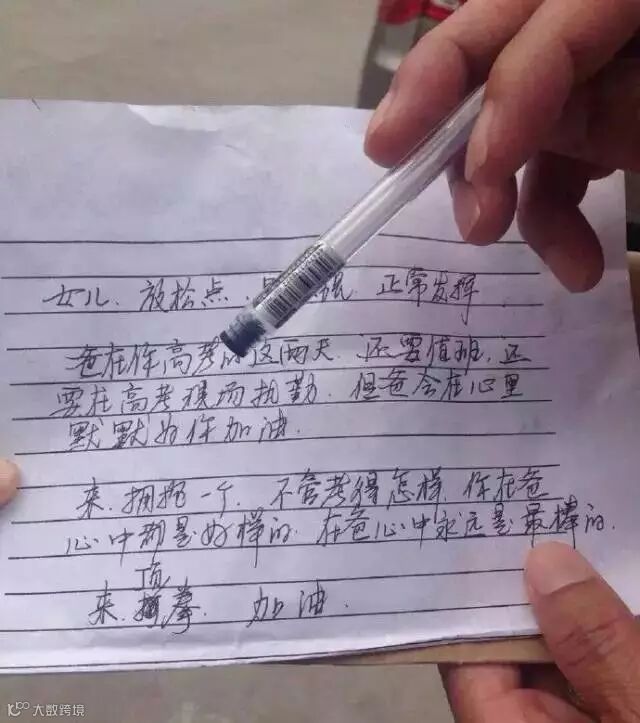 女儿.放松点. 正常发挥
爸在你高考的这两天.还要值班,还
要在高考现场执勤.但爸会在心里
默默为你加油.
来.拥抱一个.不管考得怎样.你在爸
心中都是好样的.在爸心中永远是最棒的.
顶
来. 拳. 加油.
大数跨境